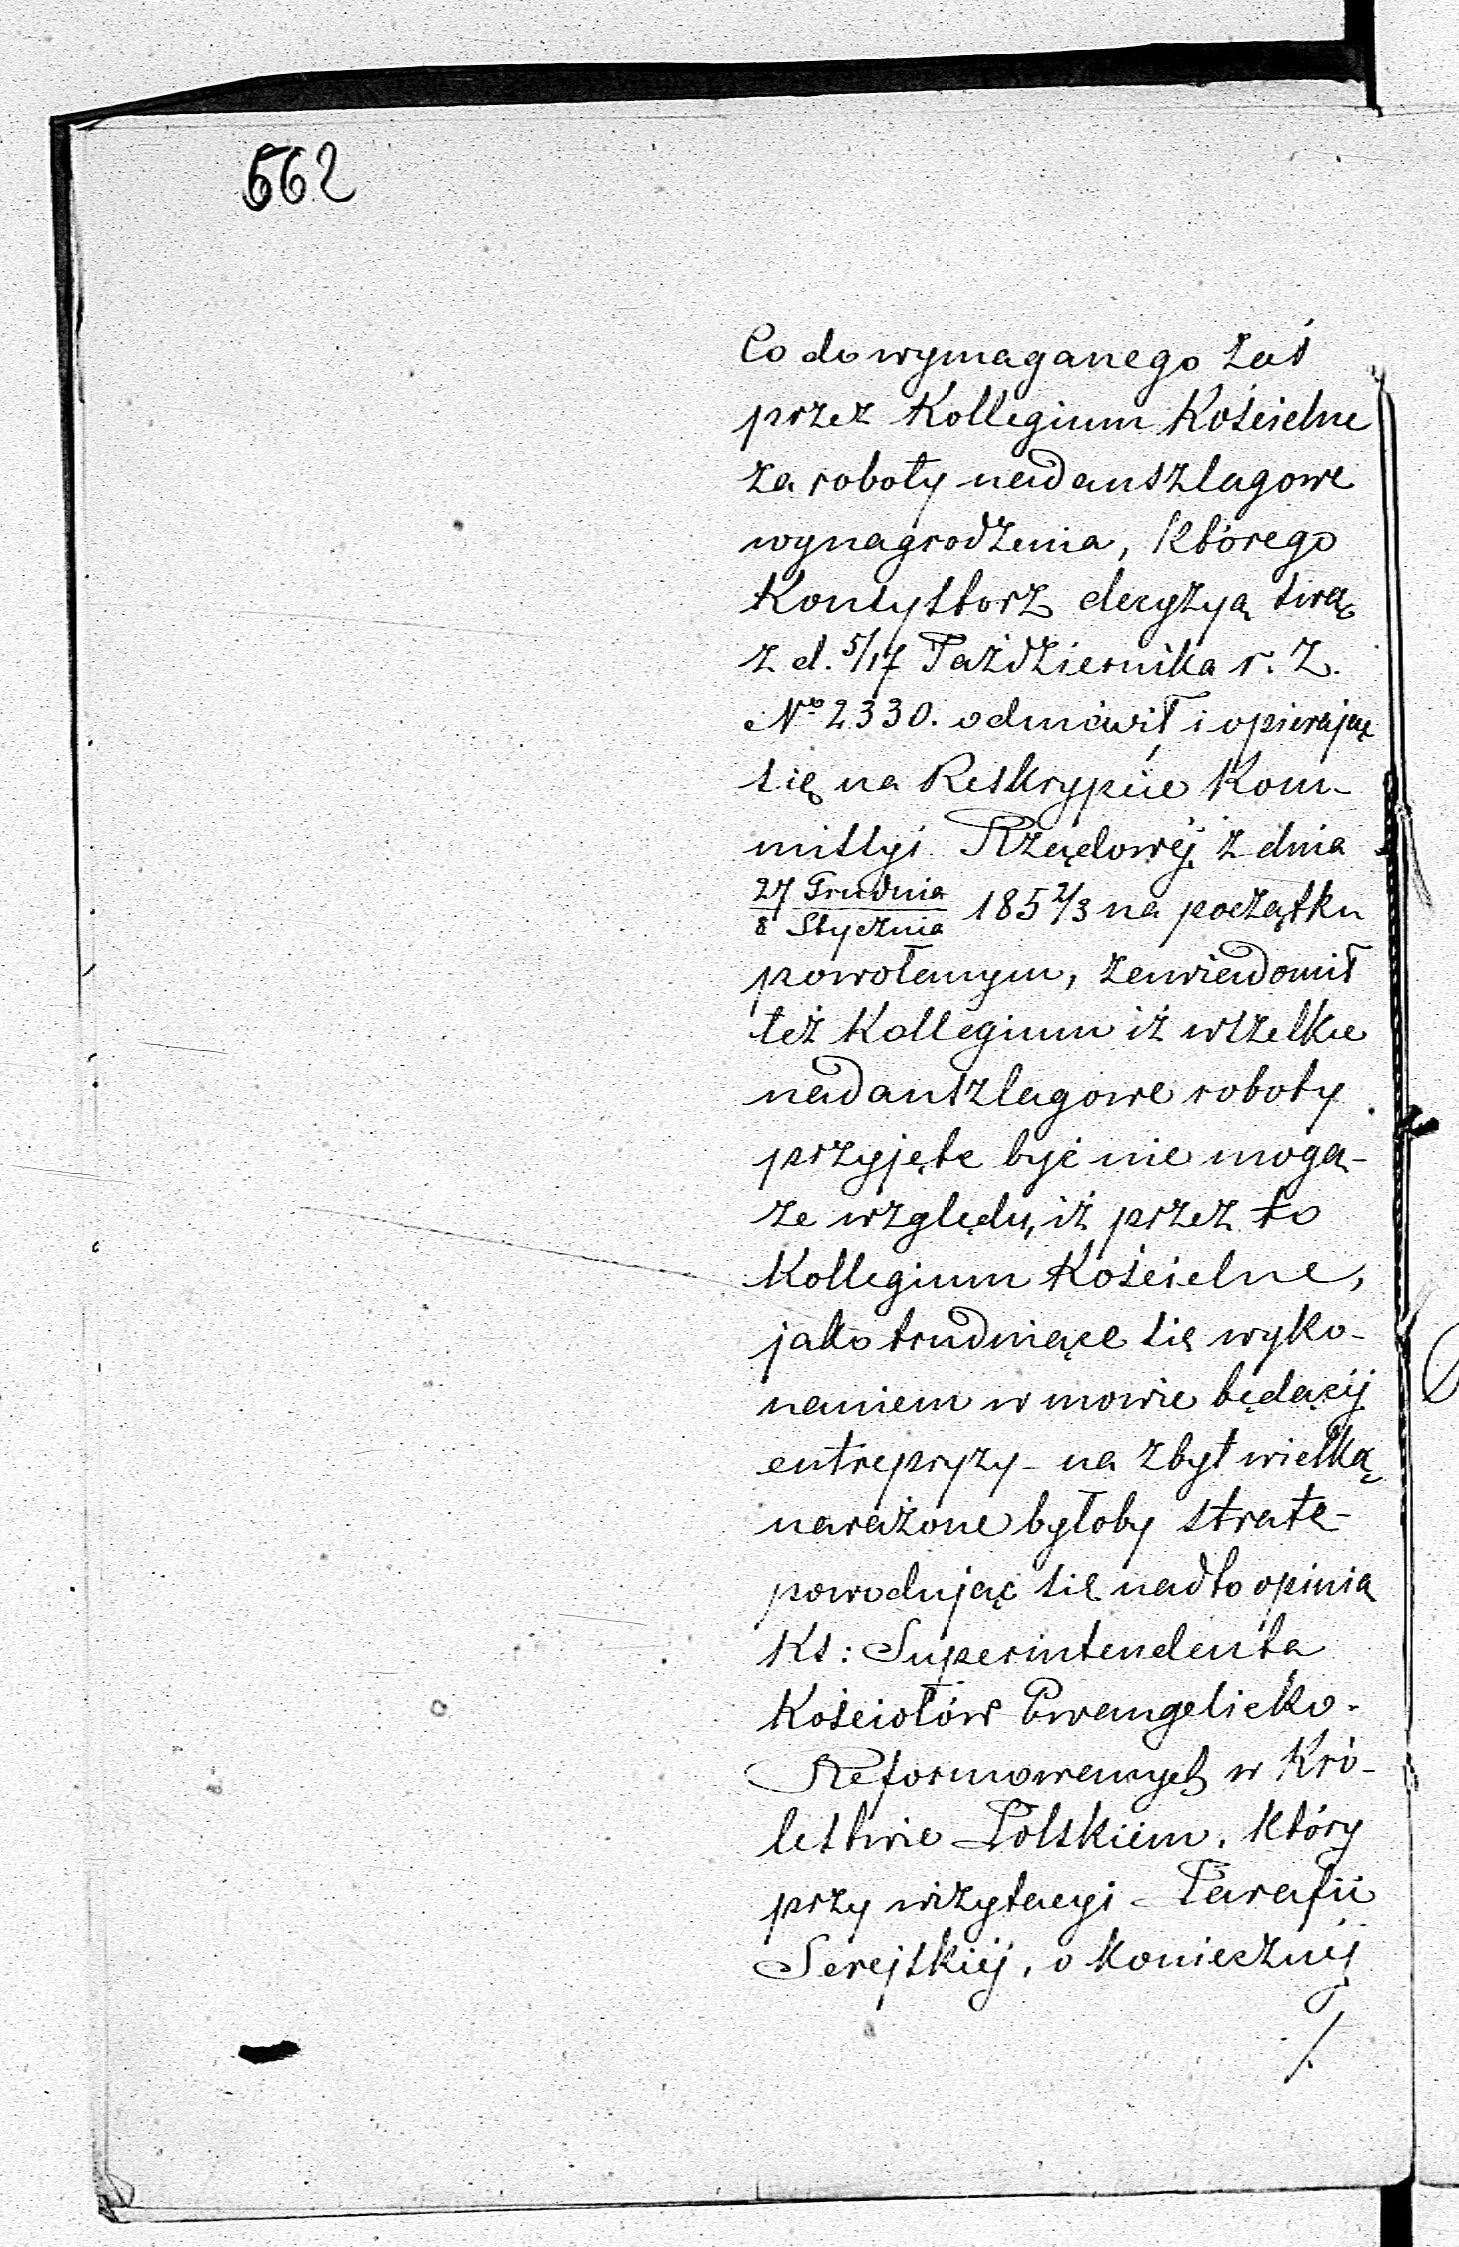 662
Co do wymaganego zaś
przez Kollegium Kościelne
za roboty nadanszlagowe
wynagrodzenia, którego
Konsystorz decyzyą swą
z d. 5/17 Października r. z.
№ 2330. odmówił i opierając
się na Reskrypcie Kom-
missyi Rządowéj z dnia
27 Grudnia / 8 Stycznia 185 2/3 na początku
powołanym, zawiadomił
też Kollegium iż wszelkie
nadanszlagowe roboty
przyjęte być nie mogą-
ze względu, iż przez to
Kollegium Kościelne,
jako trudniące się wyko-
naniem w mowie będącéj
entrepryzy - na zbyt wielką
narażone byłoby stratę -
powodując się nadto opinią
Ks: Superintendenta
Kościołów Ewangelicko-
Reformowanych w Kró-
lestwie Polskiem, który
przy wizytacyi Parafii
Serejskiéj, o koniecznéj
./.